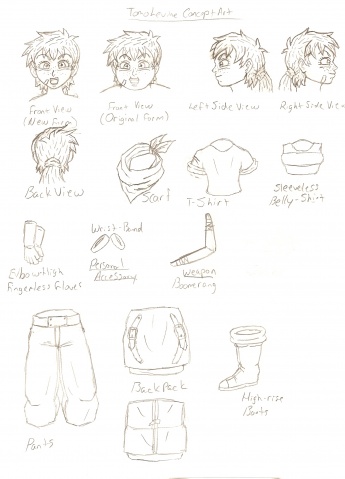 Concept Art
Front View
(New Form)
Front View
(Original Form)
Left Side View
Right Side View
Back View
Scarf
T-Shirt
Sleeveless
Belly-Shirt
Elbow-High
Fingerless Gloves
Wrist-Band
Personal
Accessory
Weapon
Boomerang
Pants
BackPack
High-rise
Boots